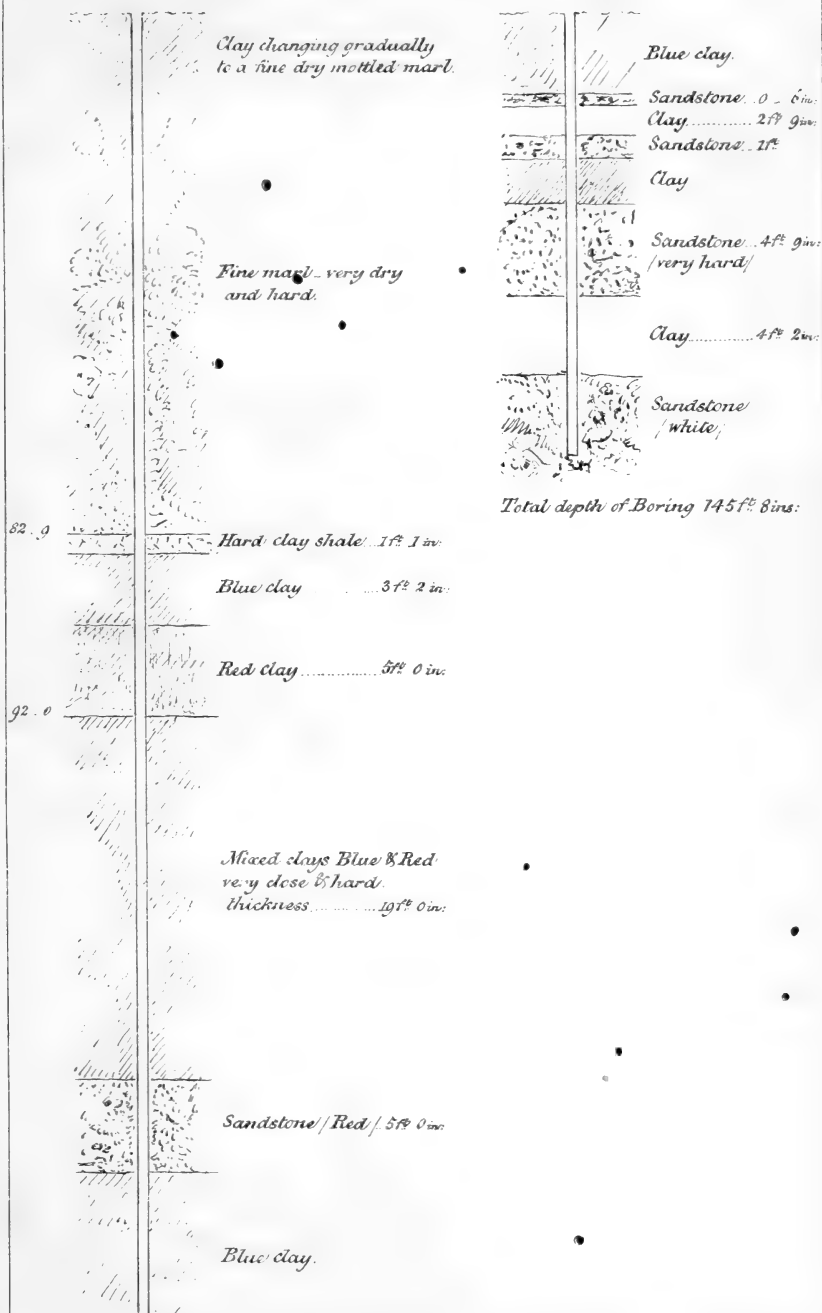 Clay changing gradually
to a fine dry mottled marl.
Fine marl very dry
and hard.
82.9
Hard clay shale 1ft. 1 in:
Blue clay ..... 3ft. 2 in:
Red clay ............ 5ft. 0 in:
92.0
Mixed clays Blue & Red
very close & hard.
thickness ............ 19ft. 0 in:
Sandstone /Red/ 5ft. 0 in:
Blue clay.
Blue clay.
Sandstone .. 0 - 6 in:
Clay .......... 2ft. 9 in:
Sandstone .. 1ft.
Clay
Sandstone .. 4ft. 9 in:
/very hard/
Clay .......... 4ft. 2 in:
Sandstone
/white/
Total depth of Boring 145ft. 8ins: